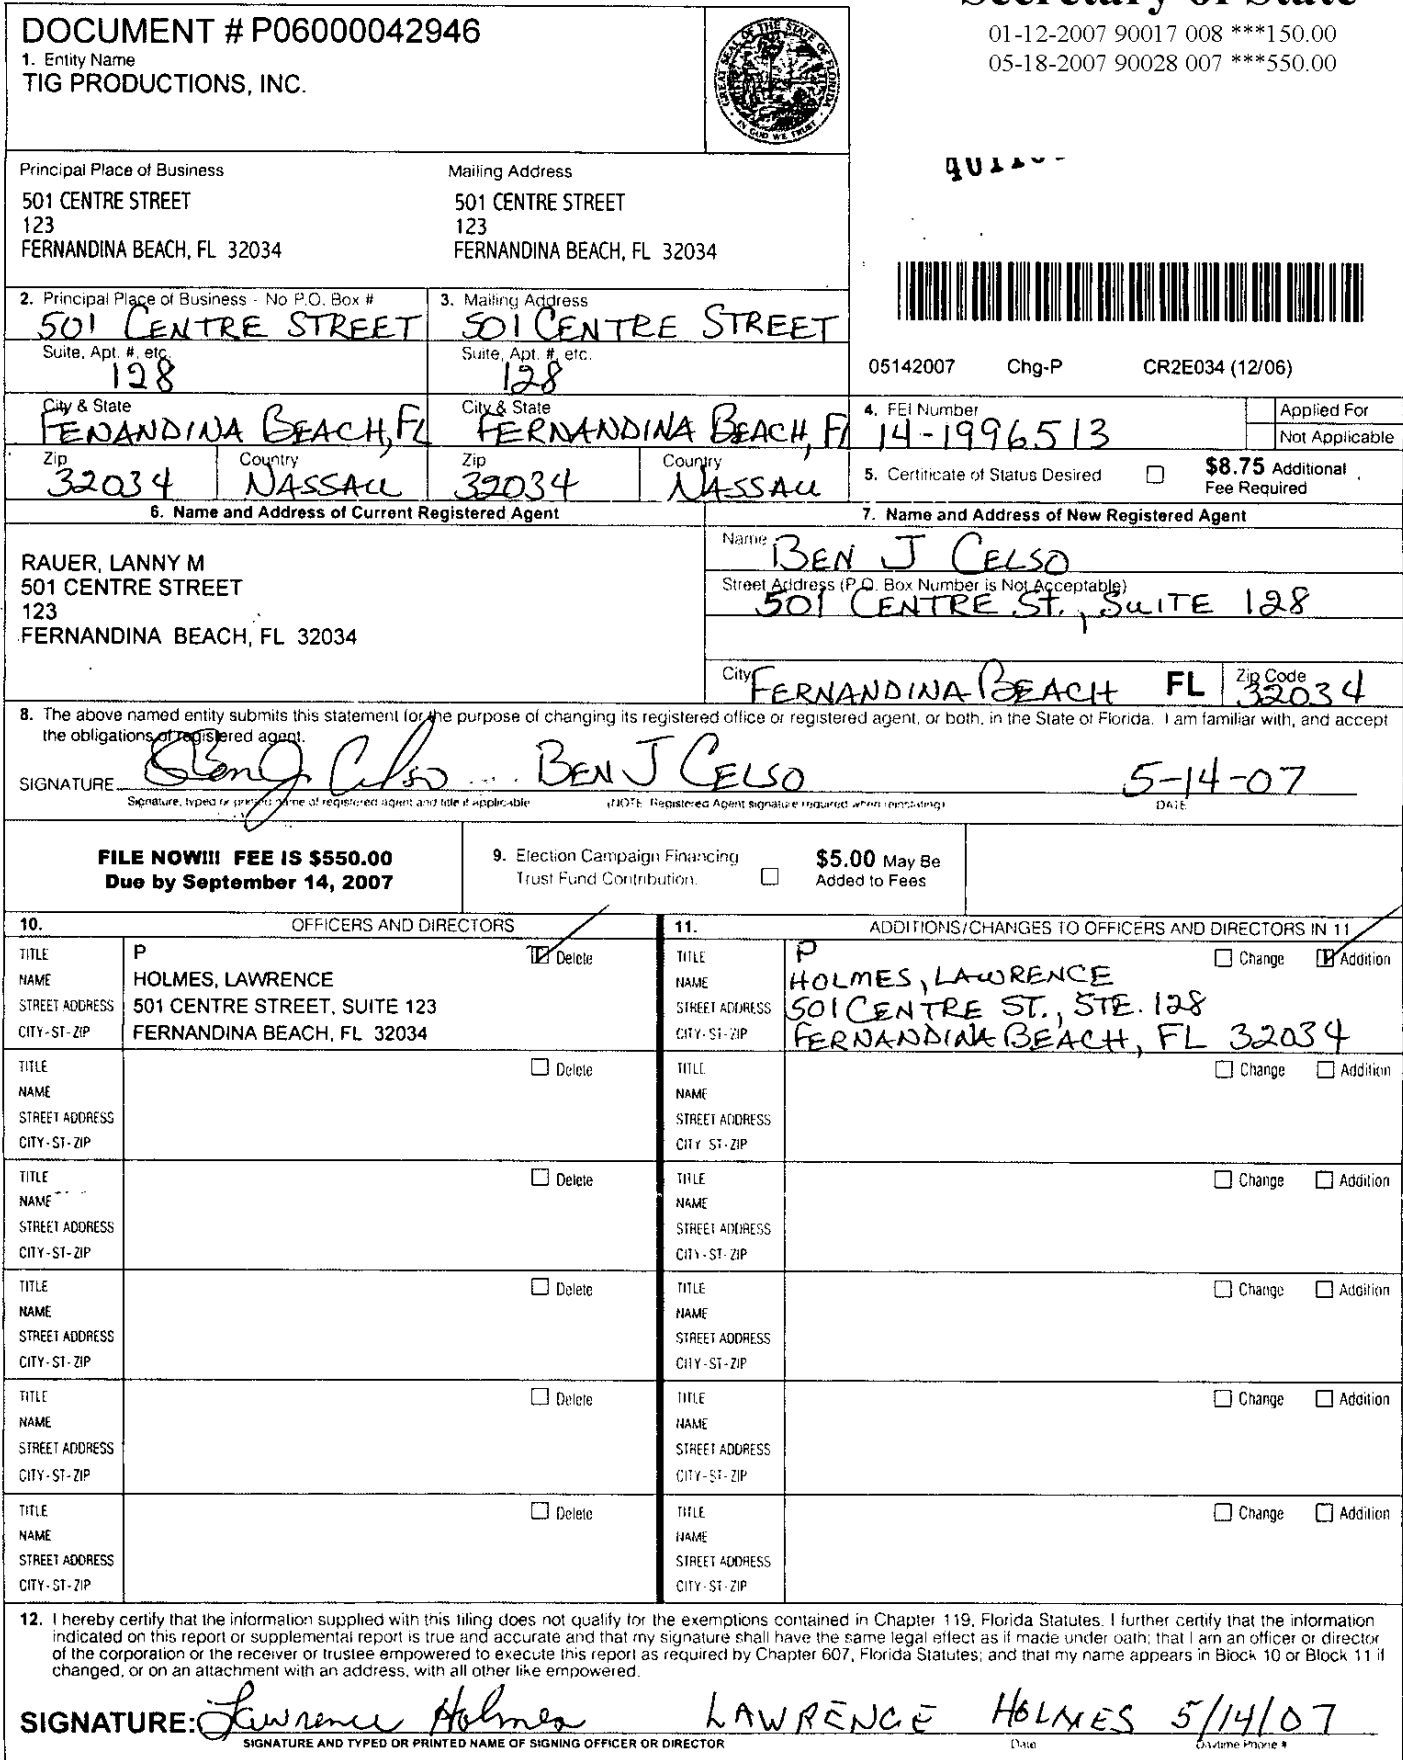 DOCUMENT # P06000042946
1. Entity Name
TIG PRODUCTIONS, INC.
GREAT SEAL OF THE STATE OF FLORIDA
IN GOD WE TRUST
Secretary of State
01-12-2007 90017 008 ***150.00
05-18-2007 90028 007 ***550.00
Principal Place of Business
501 CENTRE STREET
123
FERNANDINA BEACH, FL 32034
Mailing Address
501 CENTRE STREET
123
FERNANDINA BEACH, FL 32034
2. Principal Place of Business - No P.O. Box #
501 CENTRE STREET
3. Mailing Address
501 CENTRE STREET
Suite, Apt. #, etc.
128
Suite, Apt. #, etc.
128
05142007 Chg-P CR2E034 (12/06)
City & State
FENANDINA BEACH, FL
City & State
FERNANDINA BEACH, Fl
4. FEI Number
14-1996513
Applied For
Not Applicable
Zip
32034
Country
NASSAU
Zip
32034
Country
NASSAU
5. Certificate of Status Desired
$8.75 Additional
Fee Required
6. Name and Address of Current Registered Agent
RAUER, LANNY M
501 CENTRE STREET
123
FERNANDINA BEACH, FL 32034
7. Name and Address of New Registered Agent
Name
BEN J CELSO
Street Address (P.O. Box Number is Not Acceptable)
501 CENTRE St., SUITE 128
City
FERNANDINA BEACH
FL
Zip Code
32034
8. The above named entity submits this statement for the purpose of changing its registered office or registered agent, or both, in the State of Florida. I am familiar with, and accept
the obligations of registered agent.
SIGNATURE Ben J Celso BEN J CELSO 5-14-07
Signature, typed or printed name of registered agent and title if applicable (NOTE: Registered Agent signature required when reinstating) DATE
FILE NOW!!! FEE IS $550.00
Due by September 14, 2007
9. Election Campaign Financing
Trust Fund Contribution.
$5.00 May Be
Added to Fees
10. OFFICERS AND DIRECTORS
TITLE P Delete
NAME HOLMES, LAWRENCE
STREET ADDRESS 501 CENTRE STREET, SUITE 123
CITY-ST-ZIP FERNANDINA BEACH, FL 32034
TITLE Delete
NAME
STREET ADDRESS
CITY-ST-ZIP
TITLE Delete
NAME
STREET ADDRESS
CITY-ST-ZIP
TITLE Delete
NAME
STREET ADDRESS
CITY-ST-ZIP
TITLE Delete
NAME
STREET ADDRESS
CITY-ST-ZIP
TITLE Delete
NAME
STREET ADDRESS
CITY-ST-ZIP
11. ADDITIONS/CHANGES TO OFFICERS AND DIRECTORS IN 11
TITLE P Change Addition
NAME HOLMES, LAWRENCE
STREET ADDRESS 501 CENTRE ST., STE. 128
CITY-ST-ZIP FERNANDINA BEACH, FL 32034
TITLE Change Addition
NAME
STREET ADDRESS
CITY-ST-ZIP
TITLE Change Addition
NAME
STREET ADDRESS
CITY-ST-ZIP
TITLE Change Addition
NAME
STREET ADDRESS
CITY-ST-ZIP
TITLE Change Addition
NAME
STREET ADDRESS
CITY-ST-ZIP
TITLE Change Addition
NAME
STREET ADDRESS
CITY-ST-ZIP
12. I hereby certify that the information supplied with this filing does not qualify for the exemptions contained in Chapter 119, Florida Statutes. I further certify that the information
indicated on this report or supplemental report is true and accurate and that my signature shall have the same legal effect as if made under oath; that I am an officer or director
of the corporation or the receiver or trustee empowered to execute this report as required by Chapter 607, Florida Statutes; and that my name appears in Block 10 or Block 11 if
changed, or on an attachment with an address, with all other like empowered.
SIGNATURE: Lawrence Holmes LAWRENCE HOLMES 5/14/07
SIGNATURE AND TYPED OR PRINTED NAME OF SIGNING OFFICER OR DIRECTOR Date Daytime Phone #